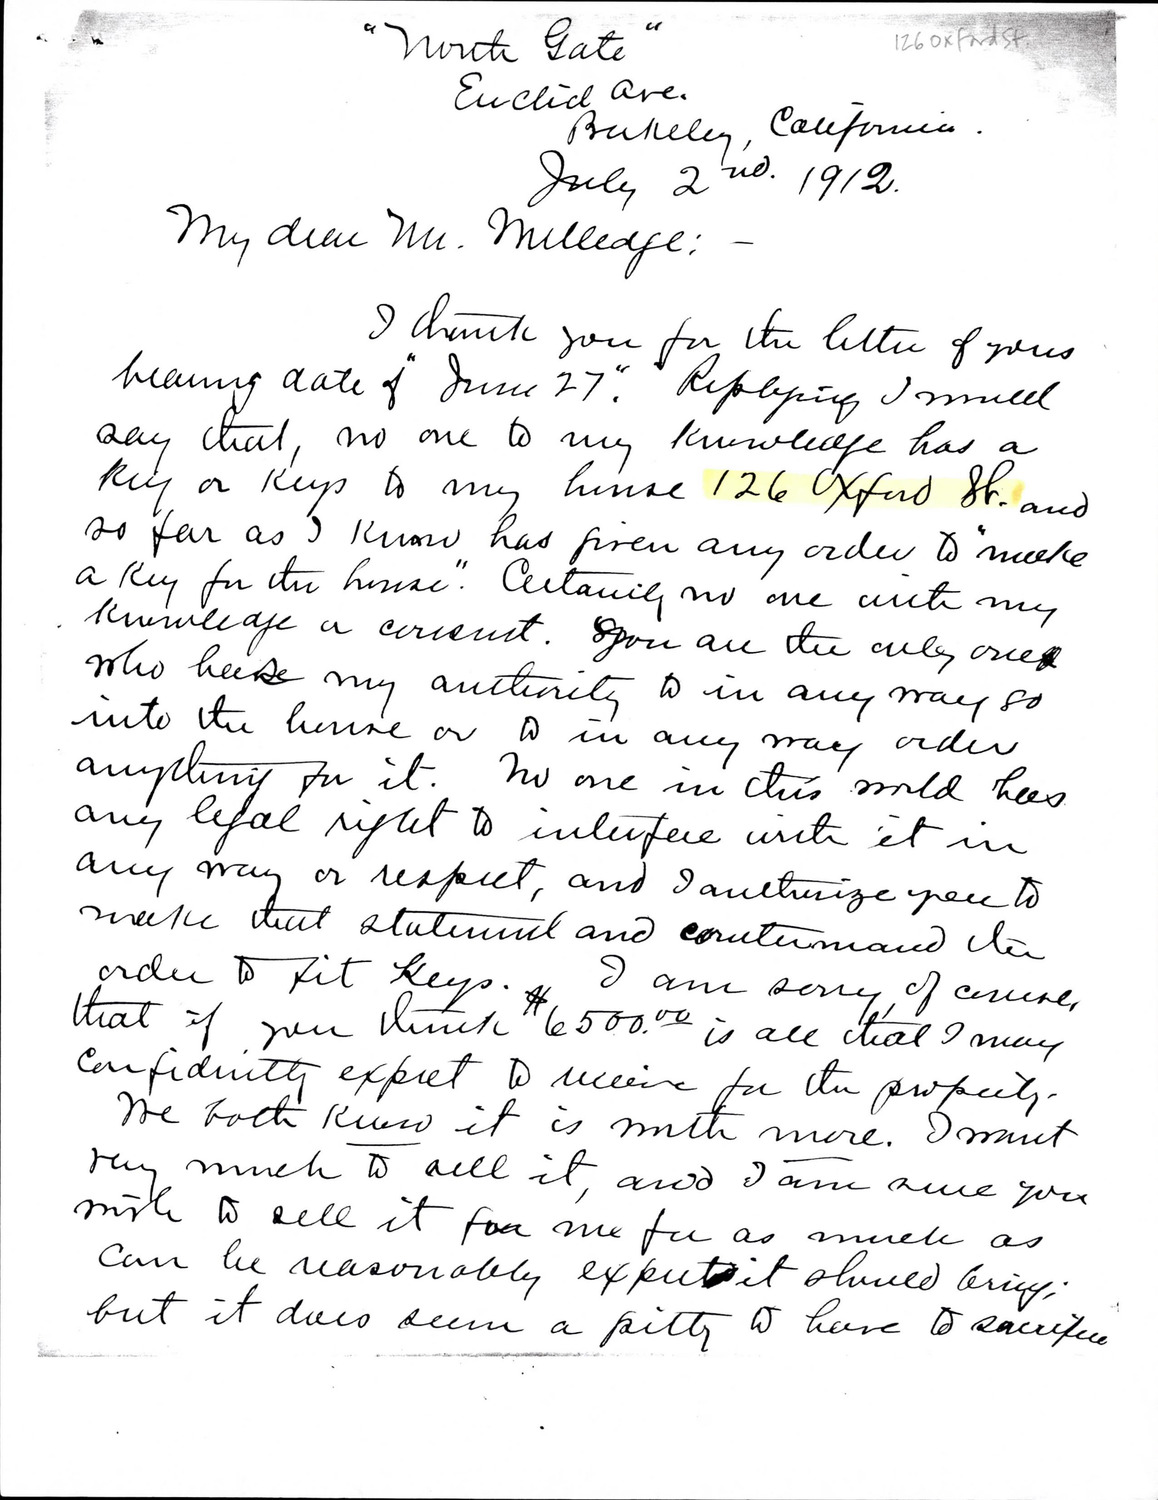 126 Oxford St.
"North Gate"
Euclid Ave.
Berkeley, California.
July 2nd. 1912.
My dear Mr. Milledge: —
I thank you for the letter of yours
bearing date of "June 27". Replying I would
say that, no one to my knowledge has a
key or keys to my house 126 Oxford St. and
so far as I know has given any order to "make
a key for the house". Certainly no one with my
knowledge or consent. You are the only one
who has my authority to in any way go
into the house or to in any way order
anything for it. No one in this world has
any legal right to interfere with it in
any way or respect, and I authorize you to
make that statement and countermand the
order to fit keys. I am sorry, of course,
that if you think $6500.00 is all that I may
confidently expect to receive for the property.
We both know it is worth more. I want
very much to sell it, and I am sure you
wish to sell it for me for as much as
can be reasonably expected it should bring;
but it does seem a pitty to have to sacrifice